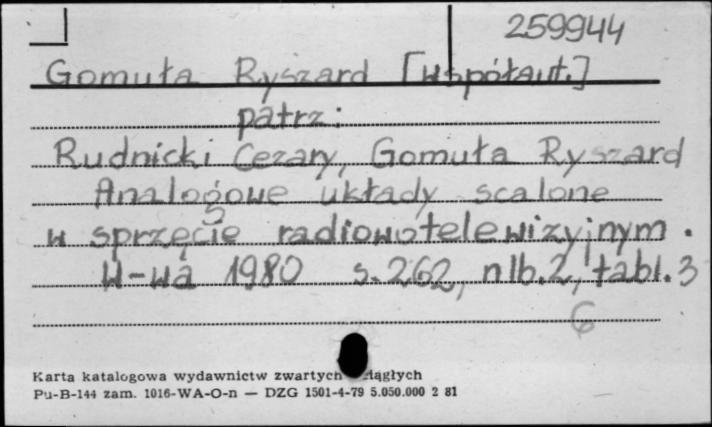 259944
Gomuła Ryszard [współaut.]
patrz:
Rudnicki Cezary, Gomuła Ryszard
Analogowe układy scalone
w sprzęcie radiowotelewizyjnym.
W-wa 1980 s. 262, nlb. 2, tabl. 3
6
Karta katalogowa wydawnictw zwartych
Pu-B-144 zam. 1016-WA-O-n — DZG 1501-4-79 5.050.000 2 81